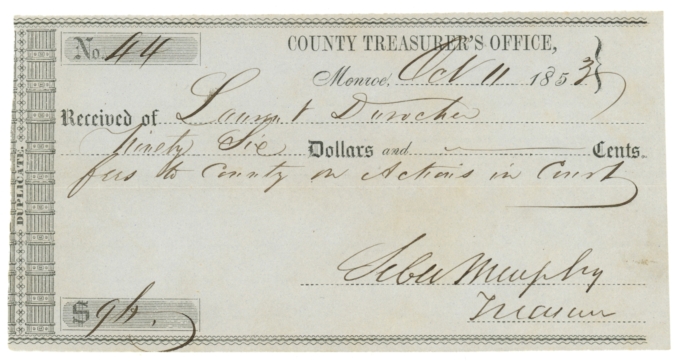 No. 44
COUNTY TREASURER'S OFFICE,
Monroe, Oct 11 1853
Received of Laurent Durocher
Ninety Six Dollars and Cents.
fees to County on Actions in Court
Murphy
Treasurer
$ 96.
DUPLICATE.